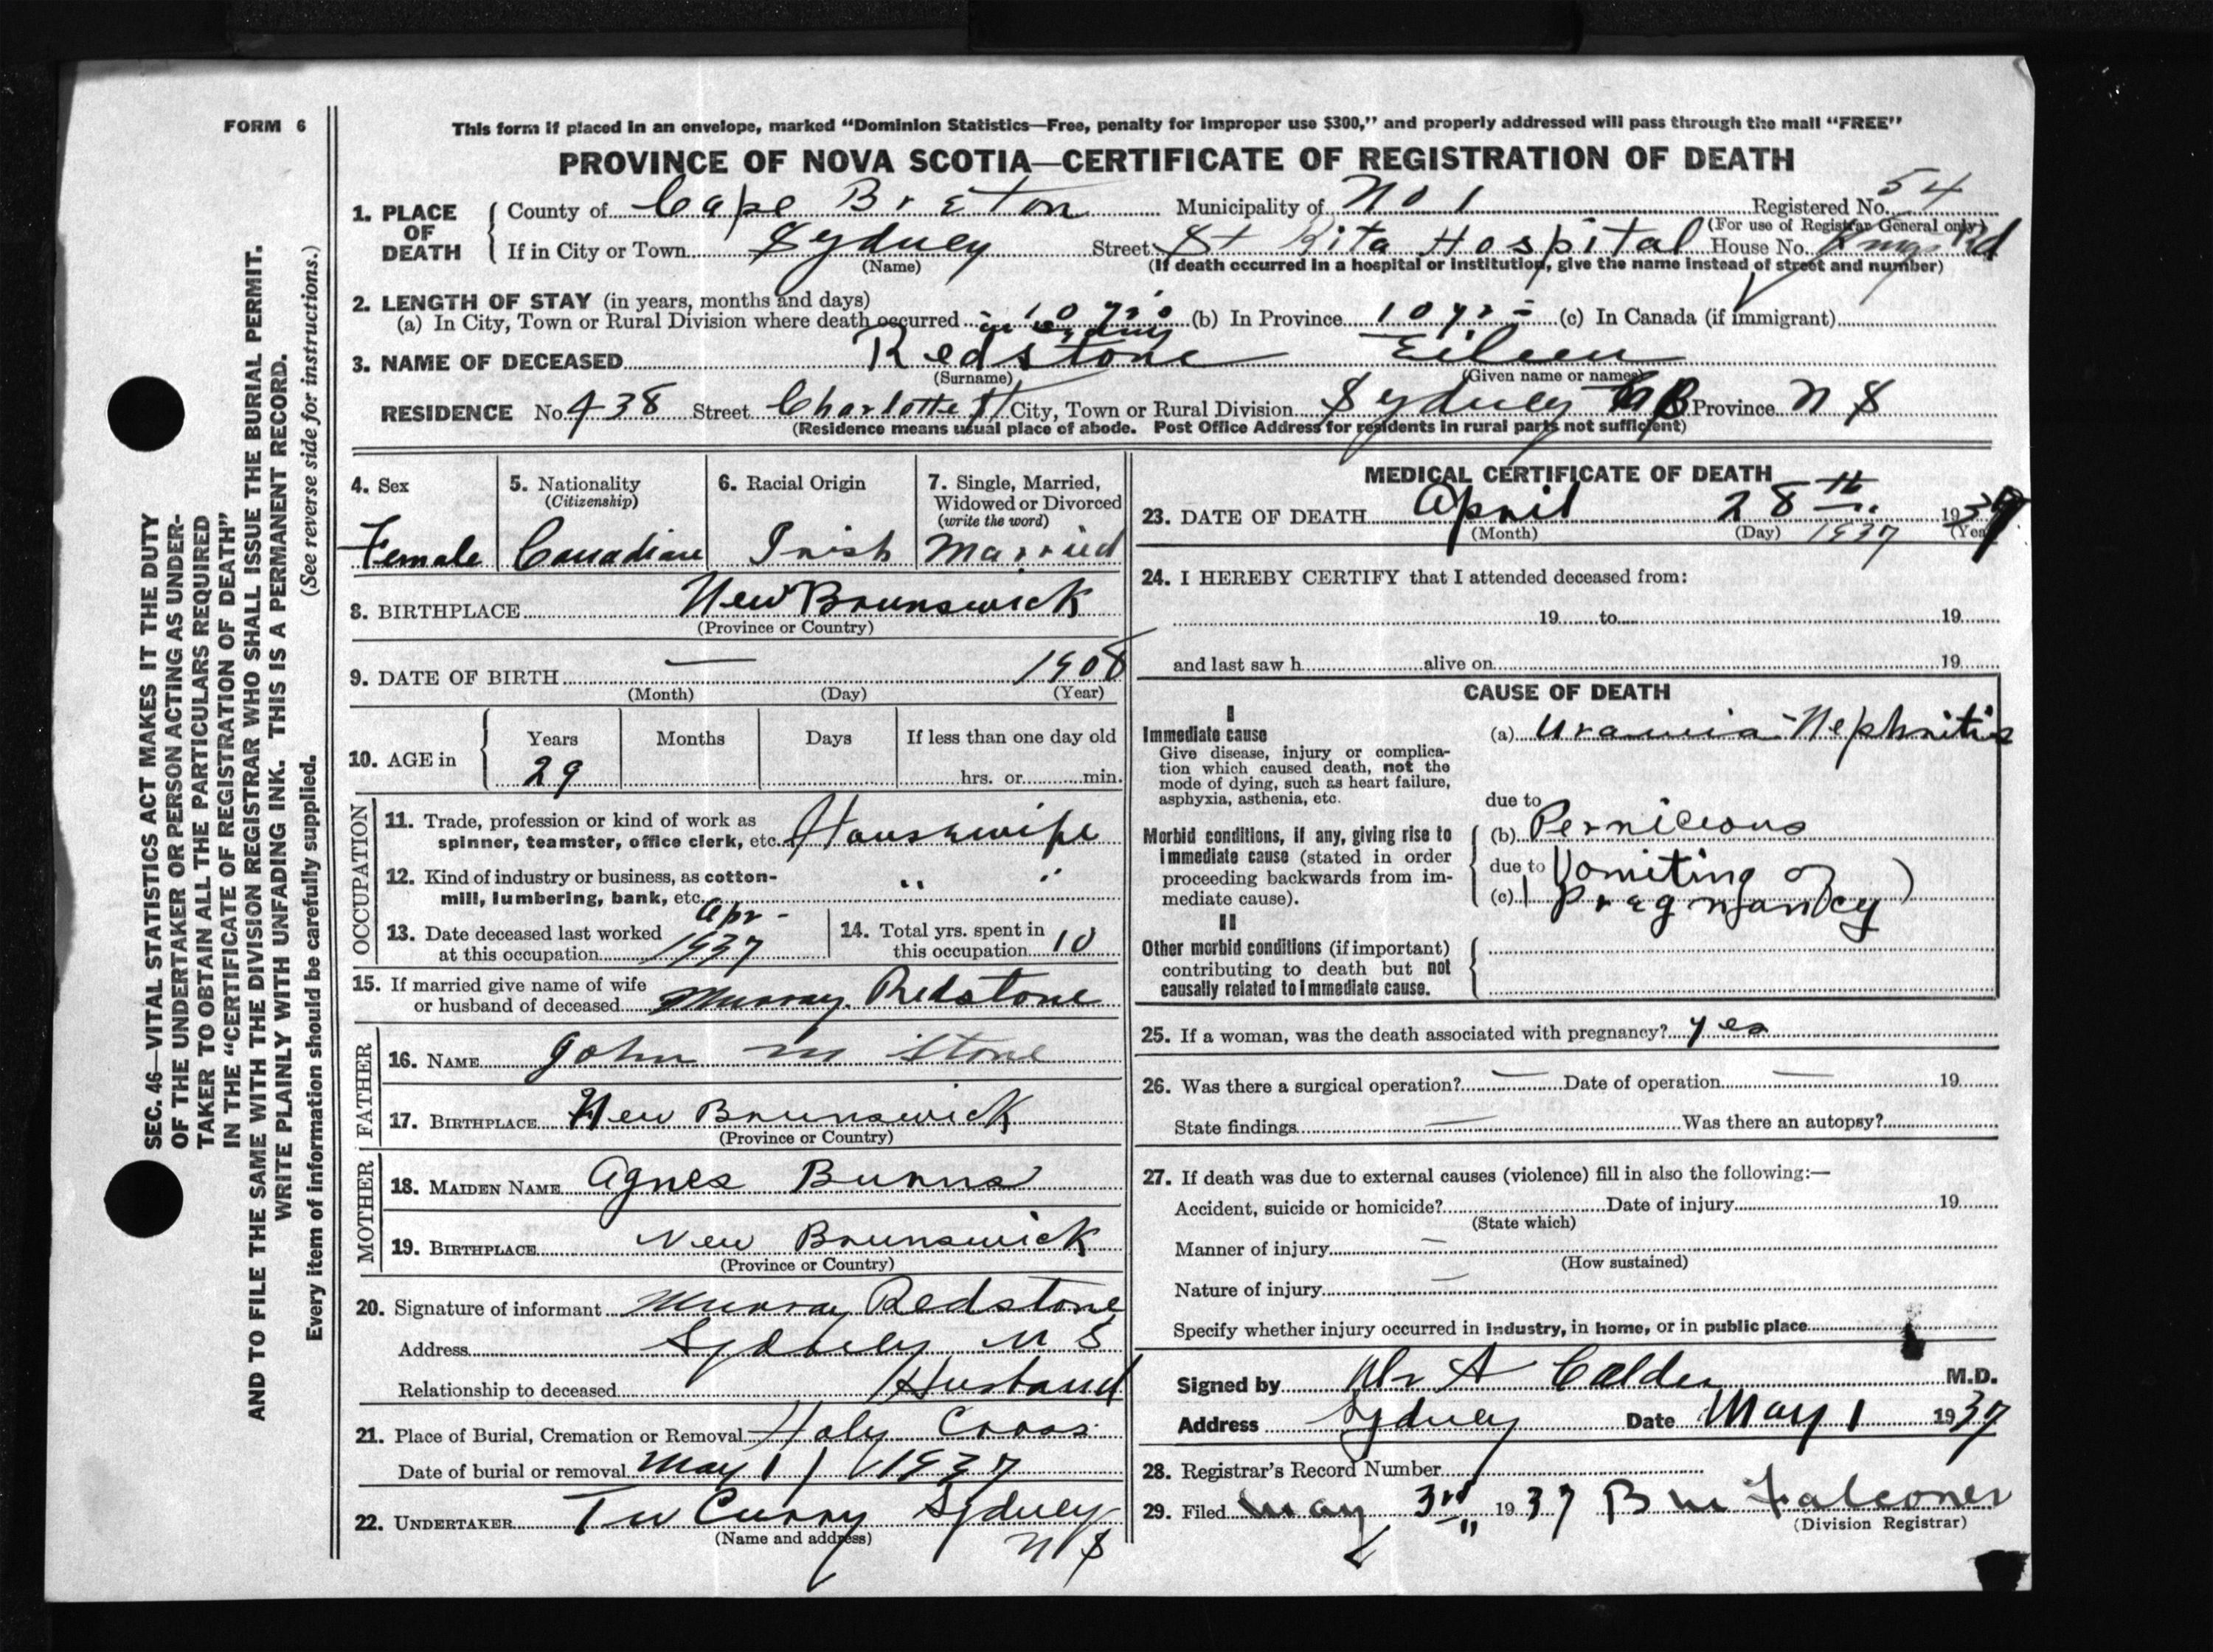 FORM 6
This form if placed in an envelope, marked “Dominion Statistics—Free, penalty for improper use $300,” and properly addressed will pass through the mail “FREE”
PROVINCE OF NOVA SCOTIA—CERTIFICATE OF REGISTRATION OF DEATH
1. PLACE OF DEATH
County of Cape Breton Municipality of No 1 Registered No. 54
(For use of Registrar General only)
If in City or Town Sydney Street St Rita Hospital House No. Kings Rd
(Name) (If death occurred in a hospital or institution, give the name instead of street and number)
2. LENGTH OF STAY (in years, months and days)
(a) In City, Town or Rural Division where death occurred 10 yrs in Sydney (b) In Province 10 yrs (c) In Canada (if immigrant)
3. NAME OF DECEASED Redstone Eileen
(Surname) (Given name or names)
RESIDENCE No. 438 Street Charlotte St City, Town or Rural Division Sydney CB Province N S
(Residence means usual place of abode. Post Office Address for residents in rural parts not sufficient)
4. Sex
Female
5. Nationality
(Citizenship)
Canadian
6. Racial Origin
Irish
7. Single, Married,
Widowed or Divorced
(write the word)
Married
8. BIRTHPLACE New Brunswick
(Province or Country)
9. DATE OF BIRTH — 1908
(Month) (Day) (Year)
10. AGE in
Years Months Days If less than one day old
29 hrs. or min.
OCCUPATION
11. Trade, profession or kind of work as
spinner, teamster, office clerk, etc. Housewife
12. Kind of industry or business, as cotton-
mill, lumbering, bank, etc. " "
13. Date deceased last worked
at this occupation Apr - 1937
14. Total yrs. spent in
this occupation 10
15. If married give name of wife
or husband of deceased Murray Redstone
FATHER
16. NAME John M Stone
17. BIRTHPLACE New Brunswick
(Province or Country)
MOTHER
18. MAIDEN NAME Agnes Burns
19. BIRTHPLACE New Brunswick
(Province or Country)
20. Signature of informant Murray Redstone
Address Sydney N S
Relationship to deceased Husband
21. Place of Burial, Cremation or Removal Holy Cross
Date of burial or removal May 1 / 1937
22. UNDERTAKER T W Curry Sydney
(Name and address) N S
MEDICAL CERTIFICATE OF DEATH
23. DATE OF DEATH April 28th 1937
(Month) (Day) 1937 (Year)
24. I HEREBY CERTIFY that I attended deceased from:
19 to 19
and last saw h alive on 19
CAUSE OF DEATH
I
Immediate cause
Give disease, injury or complica-
tion which caused death, not the
mode of dying, such as heart failure,
asphyxia, asthenia, etc.
(a) Uraemia - Nephritis
due to
Morbid conditions, if any, giving rise to
immediate cause (stated in order
proceeding backwards from im-
mediate cause).
(b) Pernicious
due to Vomiting of
(c) pregnancy )
II
Other morbid conditions (if important)
contributing to death but not
causally related to immediate cause.
25. If a woman, was the death associated with pregnancy? yes
26. Was there a surgical operation? — Date of operation — 19
State findings — Was there an autopsy?
27. If death was due to external causes (violence) fill in also the following:—
Accident, suicide or homicide? Date of injury 19
(State which)
Manner of injury —
(How sustained)
Nature of injury —
Specify whether injury occurred in industry, in home, or in public place
Signed by A Calder M.D.
Address Sydney Date May 1 1937
28. Registrar's Record Number
29. Filed May 3rd 1937 B M Falconer
(Division Registrar)
SEC. 46—VITAL STATISTICS ACT MAKES IT THE DUTY
OF THE UNDERTAKER OR PERSON ACTING AS UNDER-
TAKER TO OBTAIN ALL THE PARTICULARS REQUIRED
IN THE “CERTIFICATE OF REGISTRATION OF DEATH”
AND TO FILE THE SAME WITH THE DIVISION REGISTRAR WHO SHALL ISSUE THE BURIAL PERMIT.
WRITE PLAINLY WITH UNFADING INK. THIS IS A PERMANENT RECORD.
Every item of information should be carefully supplied. (See reverse side for instructions.)